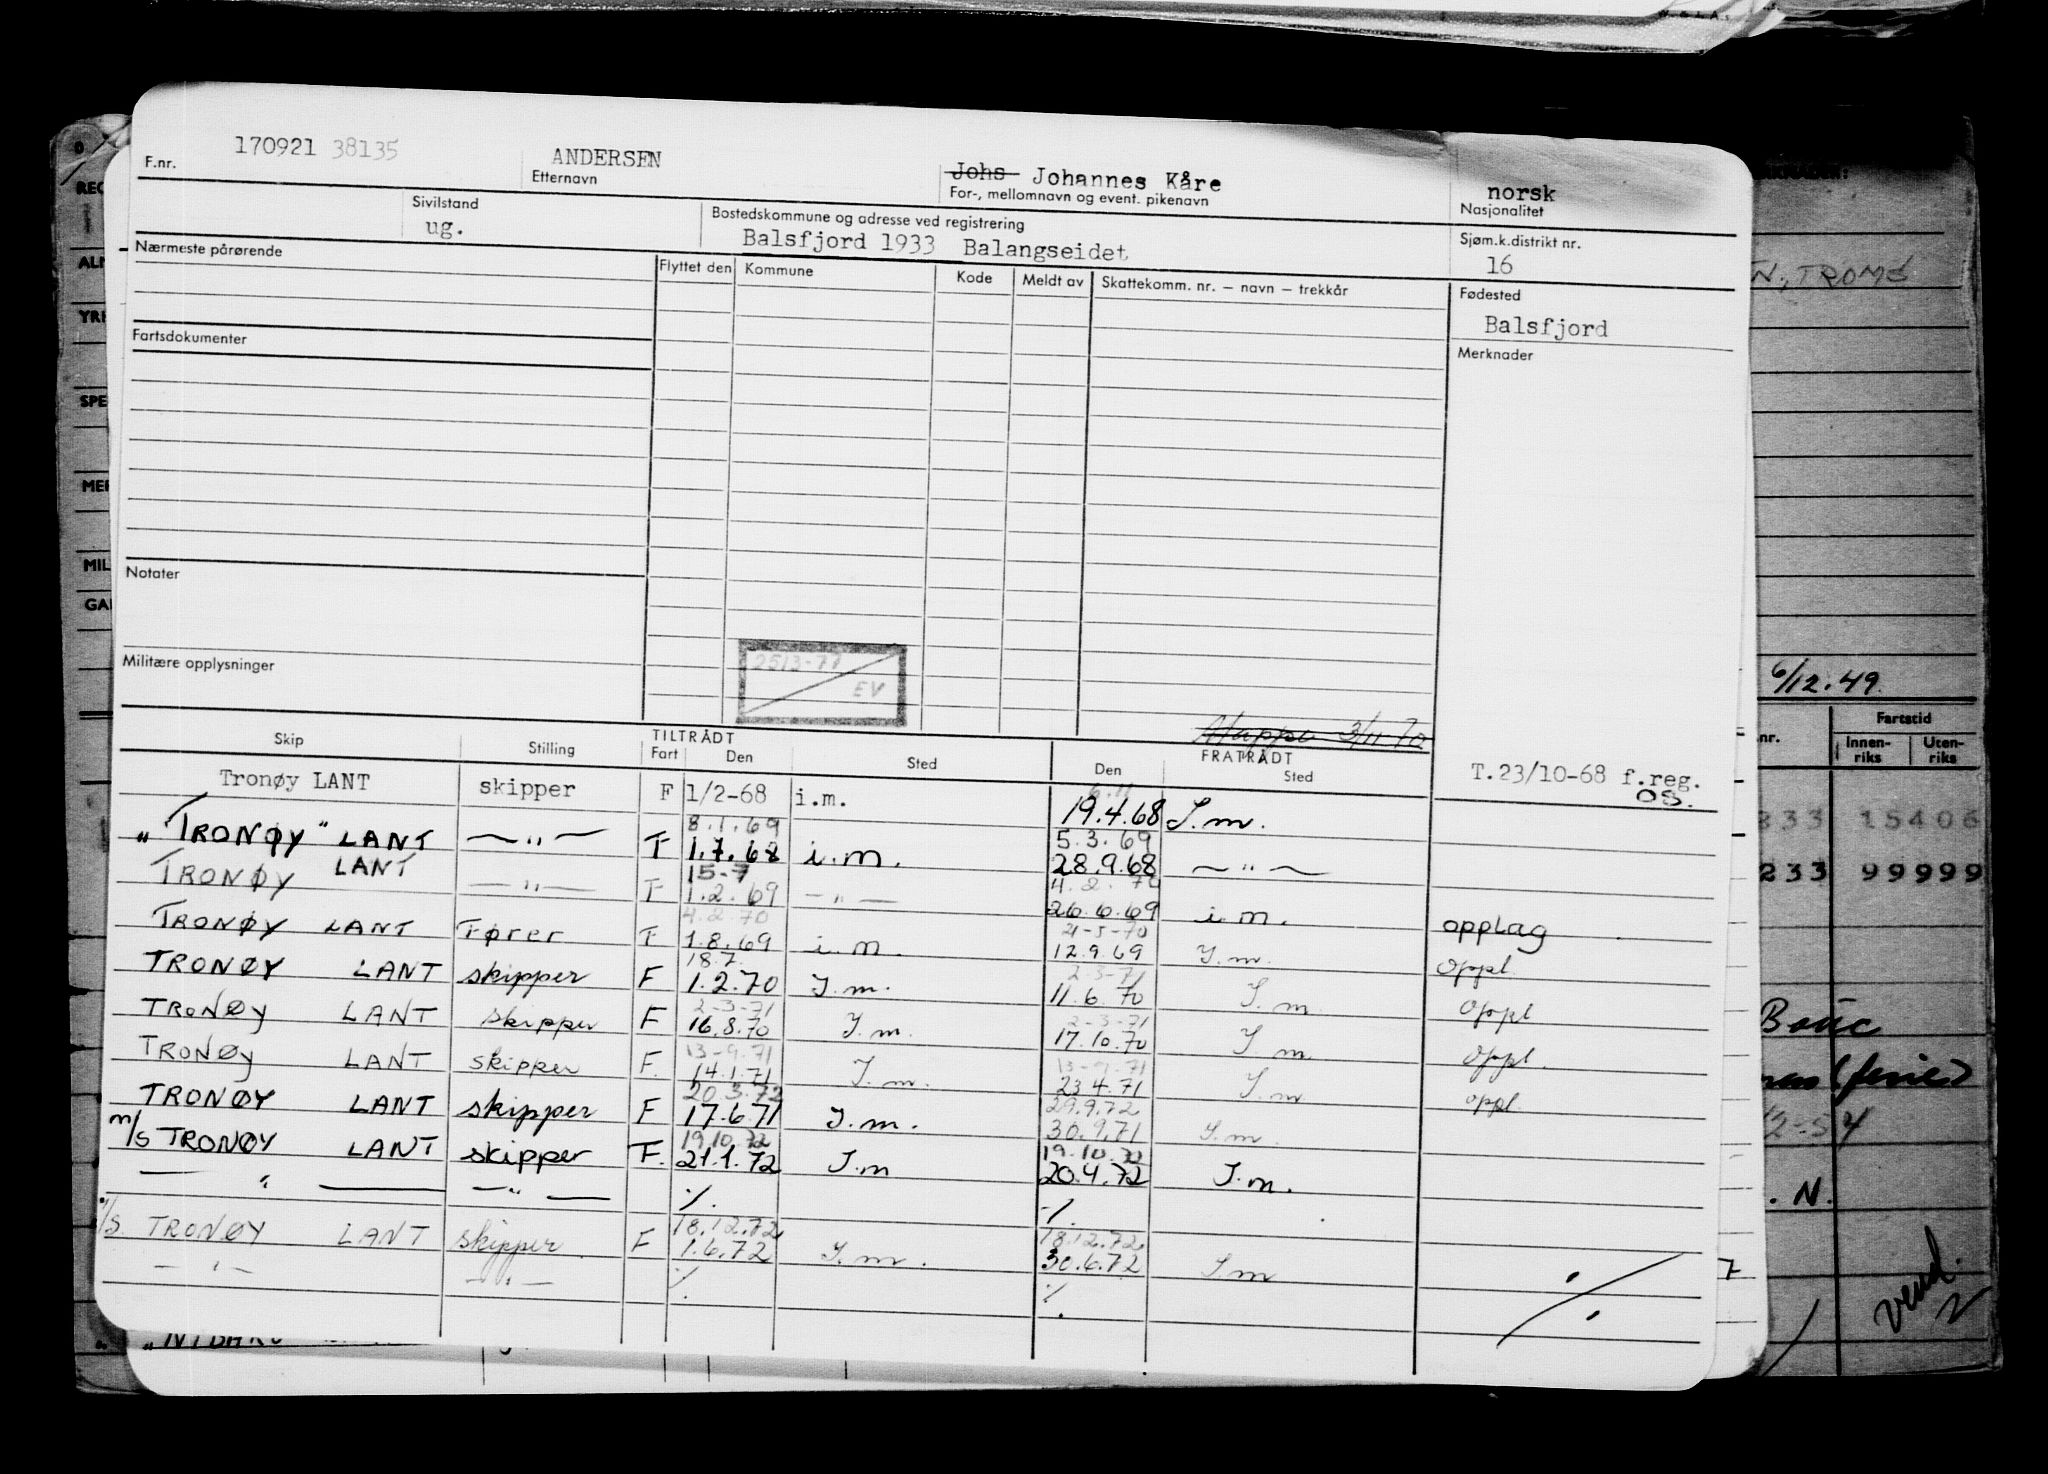 170921 38135
ANDERSEN
Johs Johannes Kåre
norsk
F.nr.
Etternavn
For-, mellomnavn og event. pikenavn
Nasjonalitet
Sivilstand
ug.
Bostedskommune og adresse ved registrering
Balsfjord 1933 Balangseidet
Sjøm.k.distrikt nr.
16
Nærmeste pårørende
Flyttet den
Kommune
Kode
Meldt av
Skattekomm. nr. – navn – trekkår
Fødested
Balsfjord
Fartsdokumenter
Merknader
Notater
Militære opplysninger
2513-77
EV
Mappe 3/11 70
Skip
Stilling
TILTRÅDT
Fart
Den
Sted
FRATRÅDT
Den
Sted
Tronøy LANT skipper F 1/2-68 i.m. 6.11 19.4.68 I.m. T.23/10-68 f.reg. OS.
8.1.69 5.3.69
„TRONØY" LANT — „ — T 1.7.68 i.m. 28.9.68 — „ —
15-7 4.2.70
TRONØY LANT — „ — T 1.2.69 — „ — 26.6.69 i.m. opplag
4.2.70 21-5-70
TRONØY LANT Fører T 1.8.69 i.m. 12.9.69 I.m. oppl.
18.7. 2-3-71
TRONØY LANT skipper F 1.2.70 I.m. 11.6.70 I.m. oppl
2-3-71 2-3-71
TRONØY LANT skipper F 16.8.70 I.m. 17.10.70 I.m oppl.
13-9.71 13-9.71
TRONØY LANT skipper F. 14.1.71 I.m. 23.4.71 I.m oppl.
20.3.72 29.9.72
TRONØY LANT skipper F 17.6.71 I.m. 30.9.71 I.m.
19.10.72 19.10.72
m/s TRONØY LANT skipper F. 21.1.72 I.m 20.4.72 I.m.
— „ — — „ — ⁒ ⁒
18.12.72 18.12.72
/s TRONØY LANT skipper F 1.6.72 I.m. 30.6.72 I.m
— „ — — „ — ⁒ ⁒
N., TROMS
6/12.49
nr.
Fartstid
Innen-riks
Uten-riks
833 15406
233 99999
(ferie)
12-54
. N.
7
vend.